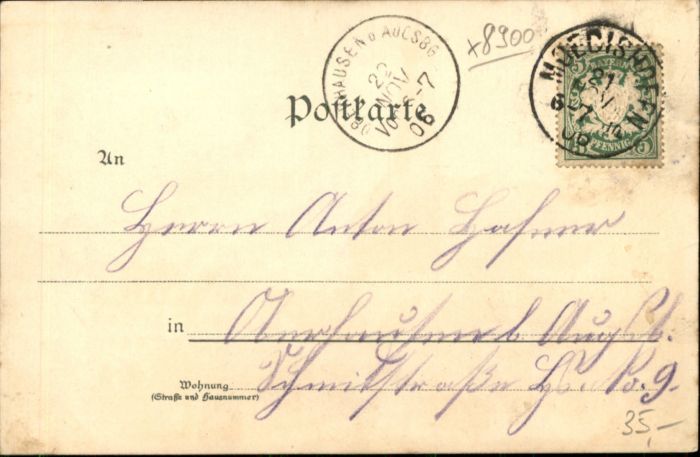 HAUSEN b AUGSBG
22
NOV
Vo 6-7
06
x8900
BAYERN
5
PFENNIG
21
06
Postkarte
An
Herrn Anton Hafner
in Oberhausen b Augsb.
Wohnung
(Straße und Hausnummer)
Schmitstraße Hs. No. 9.
35,-